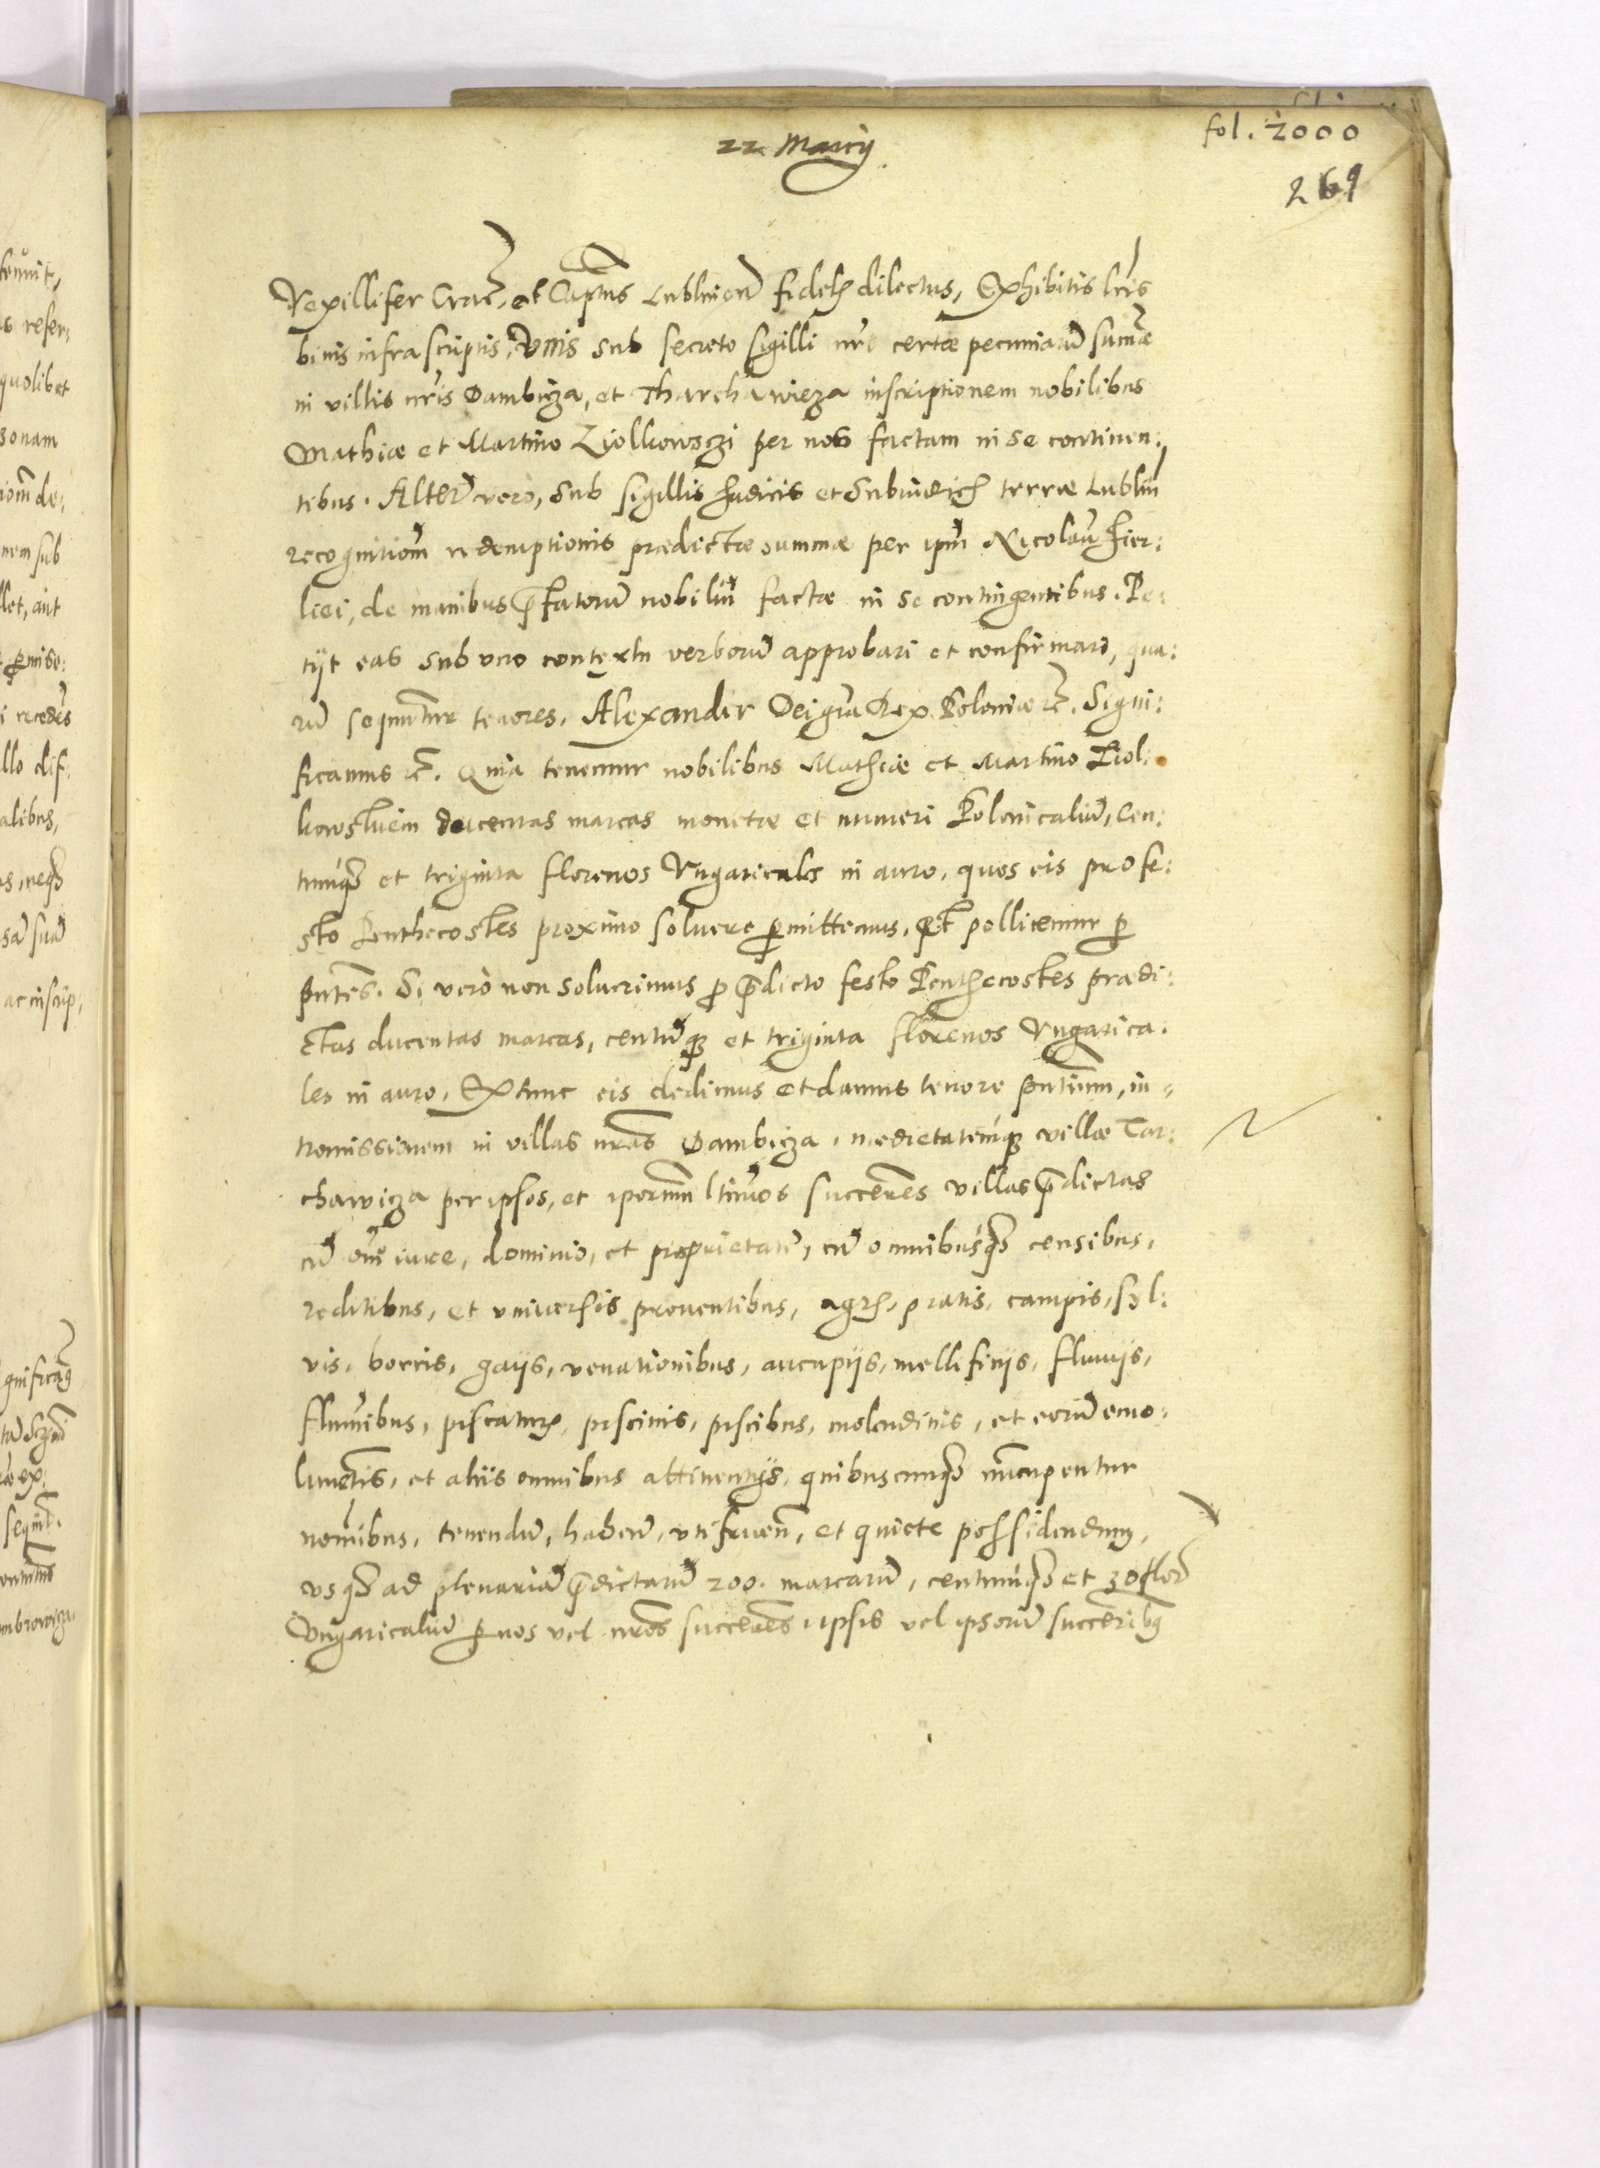 22 Marcij
fol. 2000
269
Vexillifer Crac̄, et Capt̄ns Lublinen̄ fidelis dilectus, Exhibitis l̄ris
binis infra scriptis, Vnis sub secreto sigilli nr̄i certæ pecuniarū sum̄æ
in villis nr̄is Dambicza, et Tharchawicza inscriptionem nobilibus
Mathiæ et Martino Ziolkowsczi per nos factam in se continen:
tibus. Alterū vero, sub sigillis Iudicis et Subiudicis terræ Lublin̄
recognitiom̄ redemptionis prædictæ summæ per ipm̄ Nicolaū Fier:
liei, de manibus p̄fatorū nobiliū factæ in se contingentibus. Pe:
tijt eas sub vno contextu verborū approbari et confirmari, qua:
rū sequunt̄ur tenores. Alexander Dei gr̄a Rex Poloniæ etc̄. Signi:
ficamus etc̄. Quia tenemur nobilibus Mathiæ et Martino Ziol:
kowsk̄iem ducentas marcas monetæ et numeri Polonicaliū, Cen:
tumq́ꝫ et triginta florenos Vngaricales in auro, quos eis pro fe:
sto Penthecostes proximo soluere ꝓmittemus, et pollicemur ꝑ
pn̄tes. Si verò non soluerimus ꝓ p̄dicto festo Penthecostes prædi:
ctas ducentas marcas, centūqꝫ et triginta florenos Vngarica:
les in auro, Extunc eis dedimus et damus tenore pn̄tium, in=
tromissionem in villas nr̄as Dambicza, medietatemq́ꝫ villæ Tar:
chawicza per ipsos, et iporum̄ l̄timos succen̄es villas p̄dictas
cū om̄i iure, dominio, et proprietate, cū omnibusq́ꝫ censibus,
reditibus, et vniuersis prouentibus, agris, pratis, campis, syl:
vis, borris, gaijs, venationibus, aucupijs, mellificijs, fluuijs,
flumībus, piscaturis, piscinis, piscibus, molendinis, et eorū emo:
lumēt̄is, et alijs omnibus attinentijs, quibuscunqꝫ nūcupentur
nomībus, tenendū, habenū, vtifruen̄, et quiete possidendum,
vsqꝫ ad plenariā p̄dictarū 200. marcarū, centumq́ꝫ et 30 flor̄
Vngaricaliū ꝑ nos vel nr̄os succen̄es ipsis vel ipsorū succerībꝫ